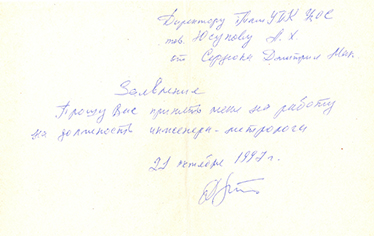 Директору
тов. Юсупову А. Х
от Дмитрия
Заявление
Прошу Вас принять меня на работу
на должность инженера-метролога
21 октября 1997 г.